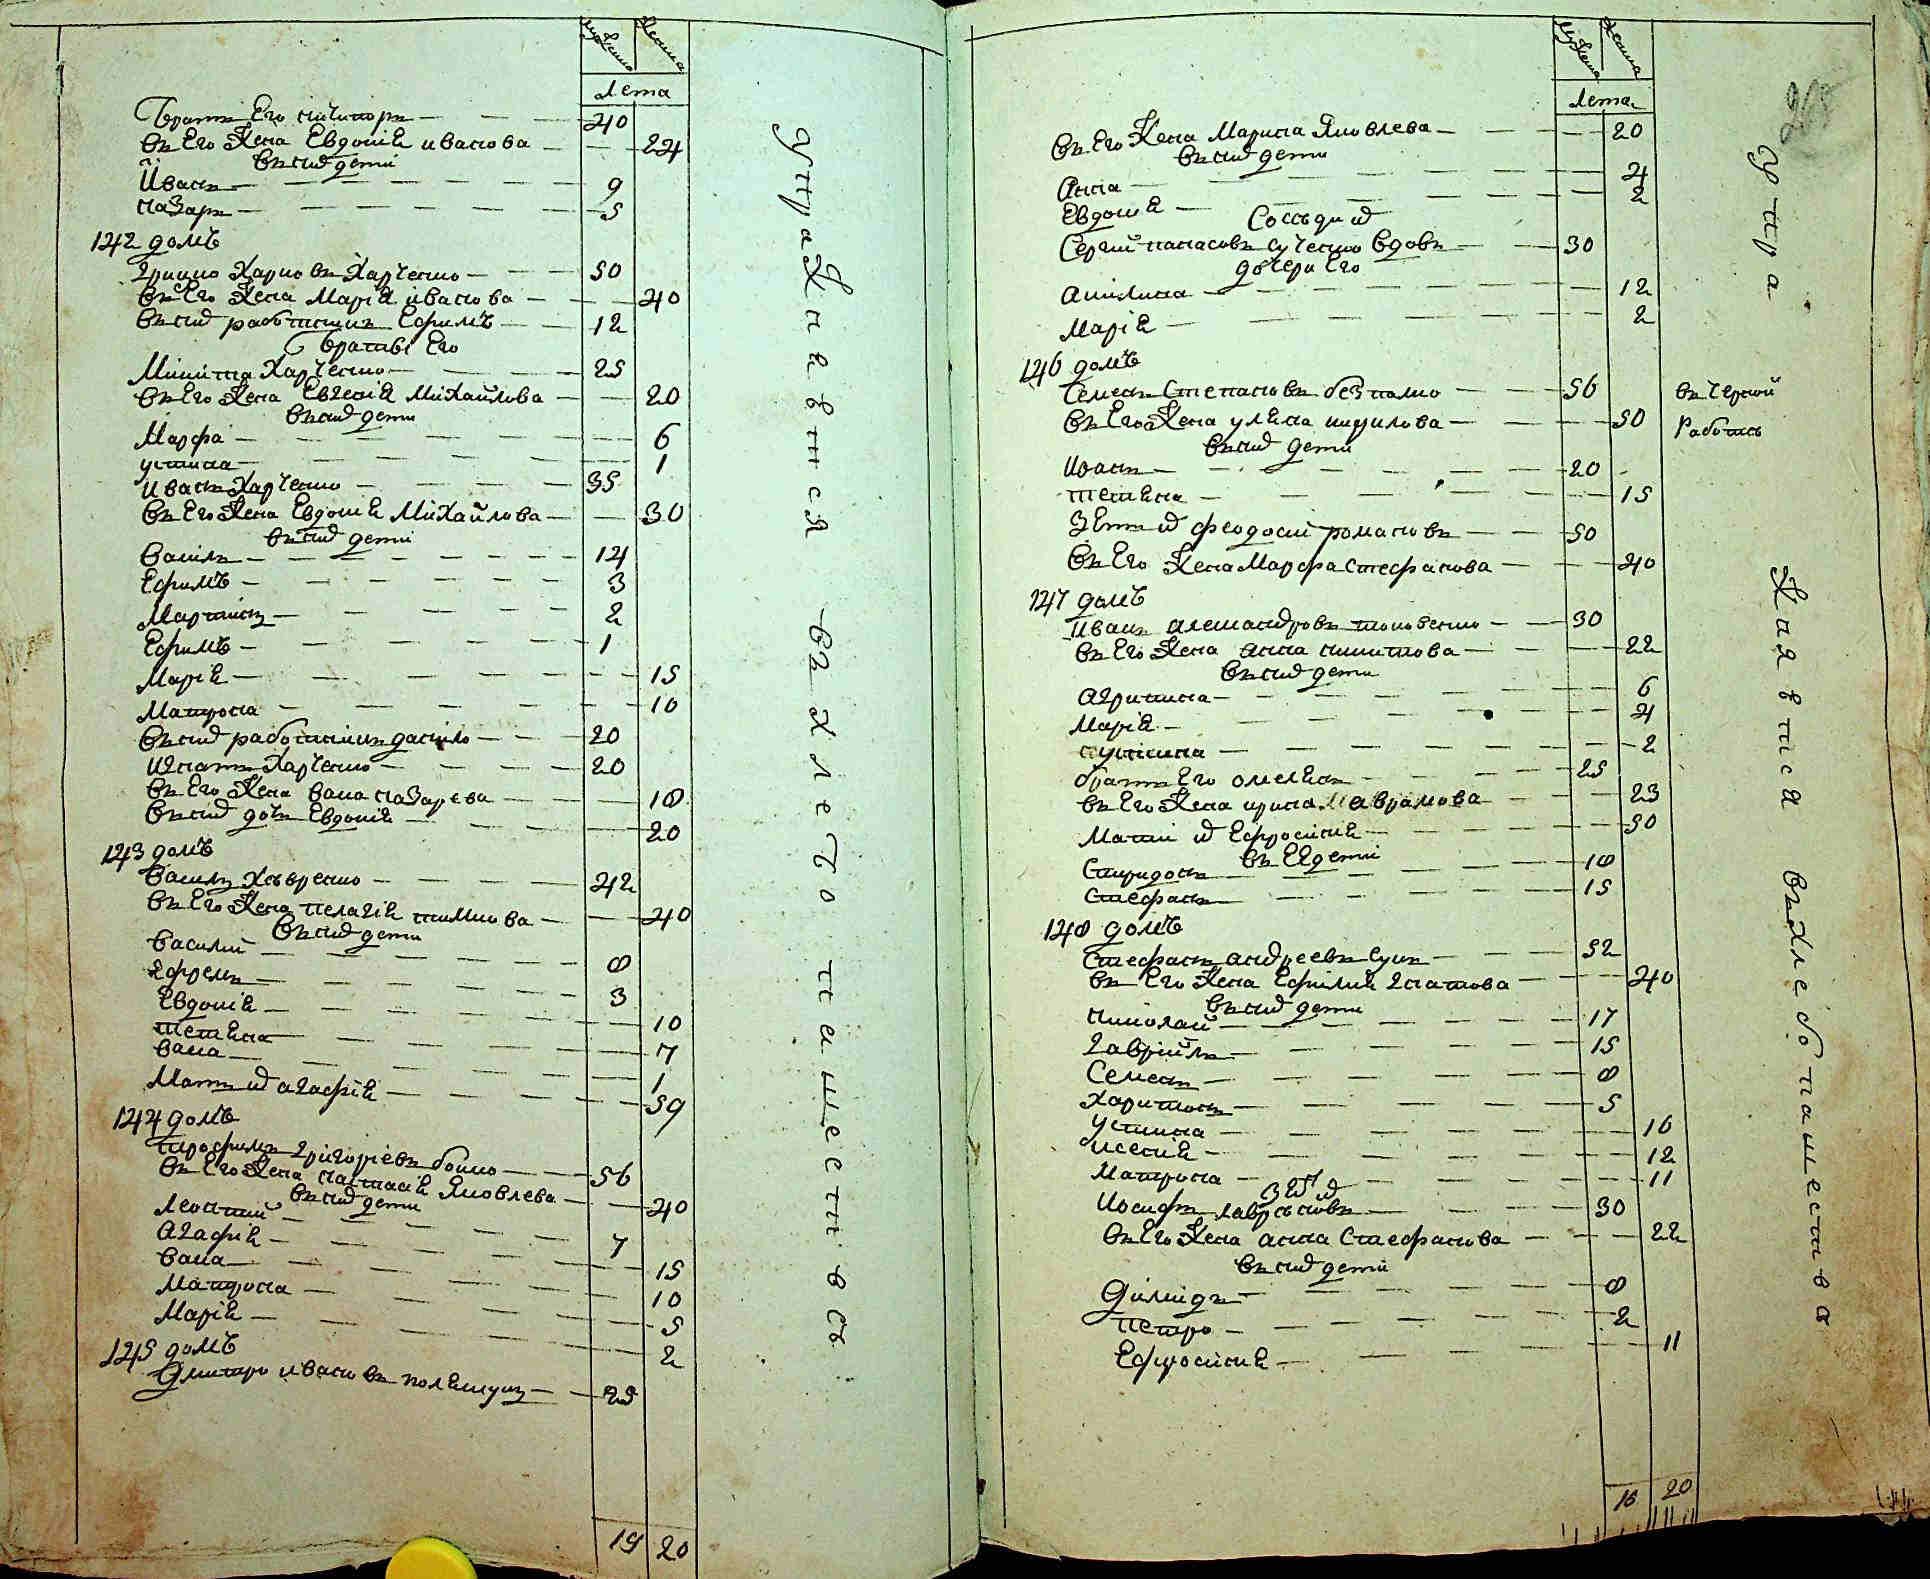 мужеска женска
лета
Братъ Его никифоръ 40
въ Его Жена Евдокія иванова 24
въ нид дети
Иванъ 9
назаръ 5
142 домъ
Грицко Карповъ Харченко 50
въ Его Жена Марія иванова 40
въ нид работникъ Ефимъ 12
братья Его
Микита Харченко 25
въ Его Жена Евгенія Михайлова 20
въ нид дети
Марфа 6
устина 1
иванъ Харченко 35
въ Его Жена Евдокія Михайлова 30
въ нид дети
василь 14
Ефимъ 3
Мартинъ 2
Ефимъ 1
Марія 15
Матрона 10
въ нид работникъ данило 20
игнатъ Харченко 20
въ Его Жена вана назарева 18
въ нид дочь Евдокія 20
143 домъ
василь 42
въ Его Жена пелагія 40
въ нид дети
василий 8
3
Евдокія 10
тетяна 7
вана 1
Мати ид агафія 59
144 домъ
трофимъ григоріевъ бойко 56
въ Его Жена настасія Яковлева 40
въ нид дети
леонтий 7
агафія 15
вана 10
Матрона 5
Марія 2
145 домъ
Дмитро ивановъ полещукъ 25
19 20
упражнаетися въ хлебопашестве
мужеска женска
лета
въ Его Жена Марина Яковлева 20
въ нид дети
анна 4
Евдокія 2
Соседи ид
Сергий панасовъ сученко вдовъ 30
дочери Его
акилина 12
Марія 2
146 домъ
Семенъ Степановъ безпалко 56
въ Его Жена уляна кирилова 50
въ нид дети
иванъ 20
тетяна 15
Зять ид феодосий романовъ 50
въ Его Жена Марфа стефанова 40
147 домъ
иванъ александровъ 30
въ Его Жена анна никитова 22
въ нид дети
агрипина 6
Марія 4
2
братъ Его омелянъ 25
въ Его Жена ирина аврамова 23
Мати ид Ефросинія 50
въ Ея дети
Спиридонъ 18
стефанъ 15
148 домъ
Стефанъ андреевъ 52
въ Его Жена Ефимія Гнатова 40
въ нид дети
николай 17
гаврійлъ 15
Семенъ 8
харитонъ 5
устина 16
ксенія 12
Матрона 11
Зять ид
иосифъ 30
въ Его Жена анна Стефанова 22
въ нид дети
8
петро 2
Ефросинія 11
16 20
въ черной
работе
упражнаетися въ хлебопашества